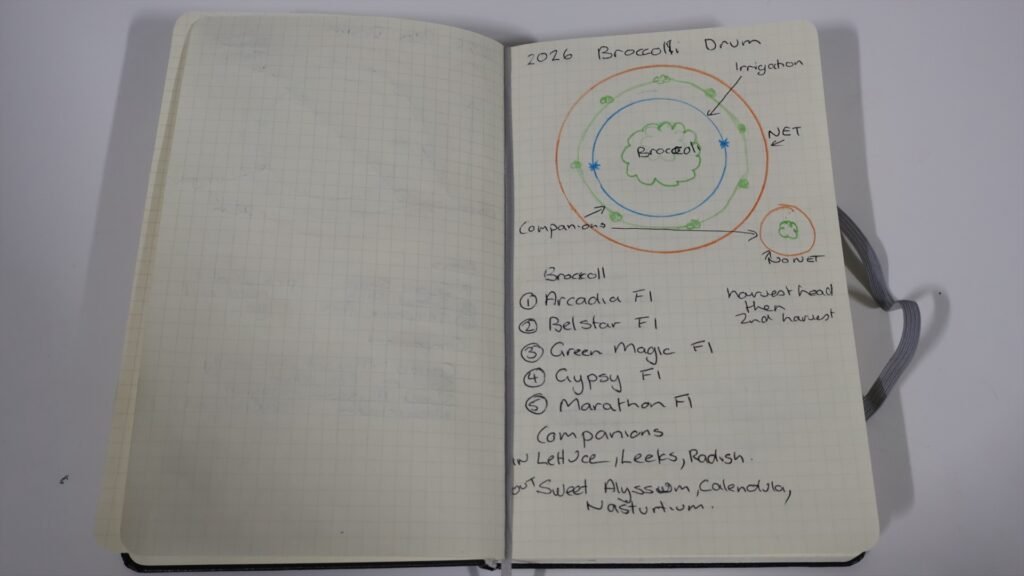 2026 Broccolli Drum
Irrigation
NET
Broccoli
Companions
NO NET
Broccoli
① Arcadia F1
② Belstar F1
③ Green Magic F1
④ Gypsy F1
⑤ Marathon F1
harvest head
then
2nd harvest
Companions
IN Lettuce, Leeks, Radish.
OUT Sweet Alyssum, Calendula,
Nasturtium.